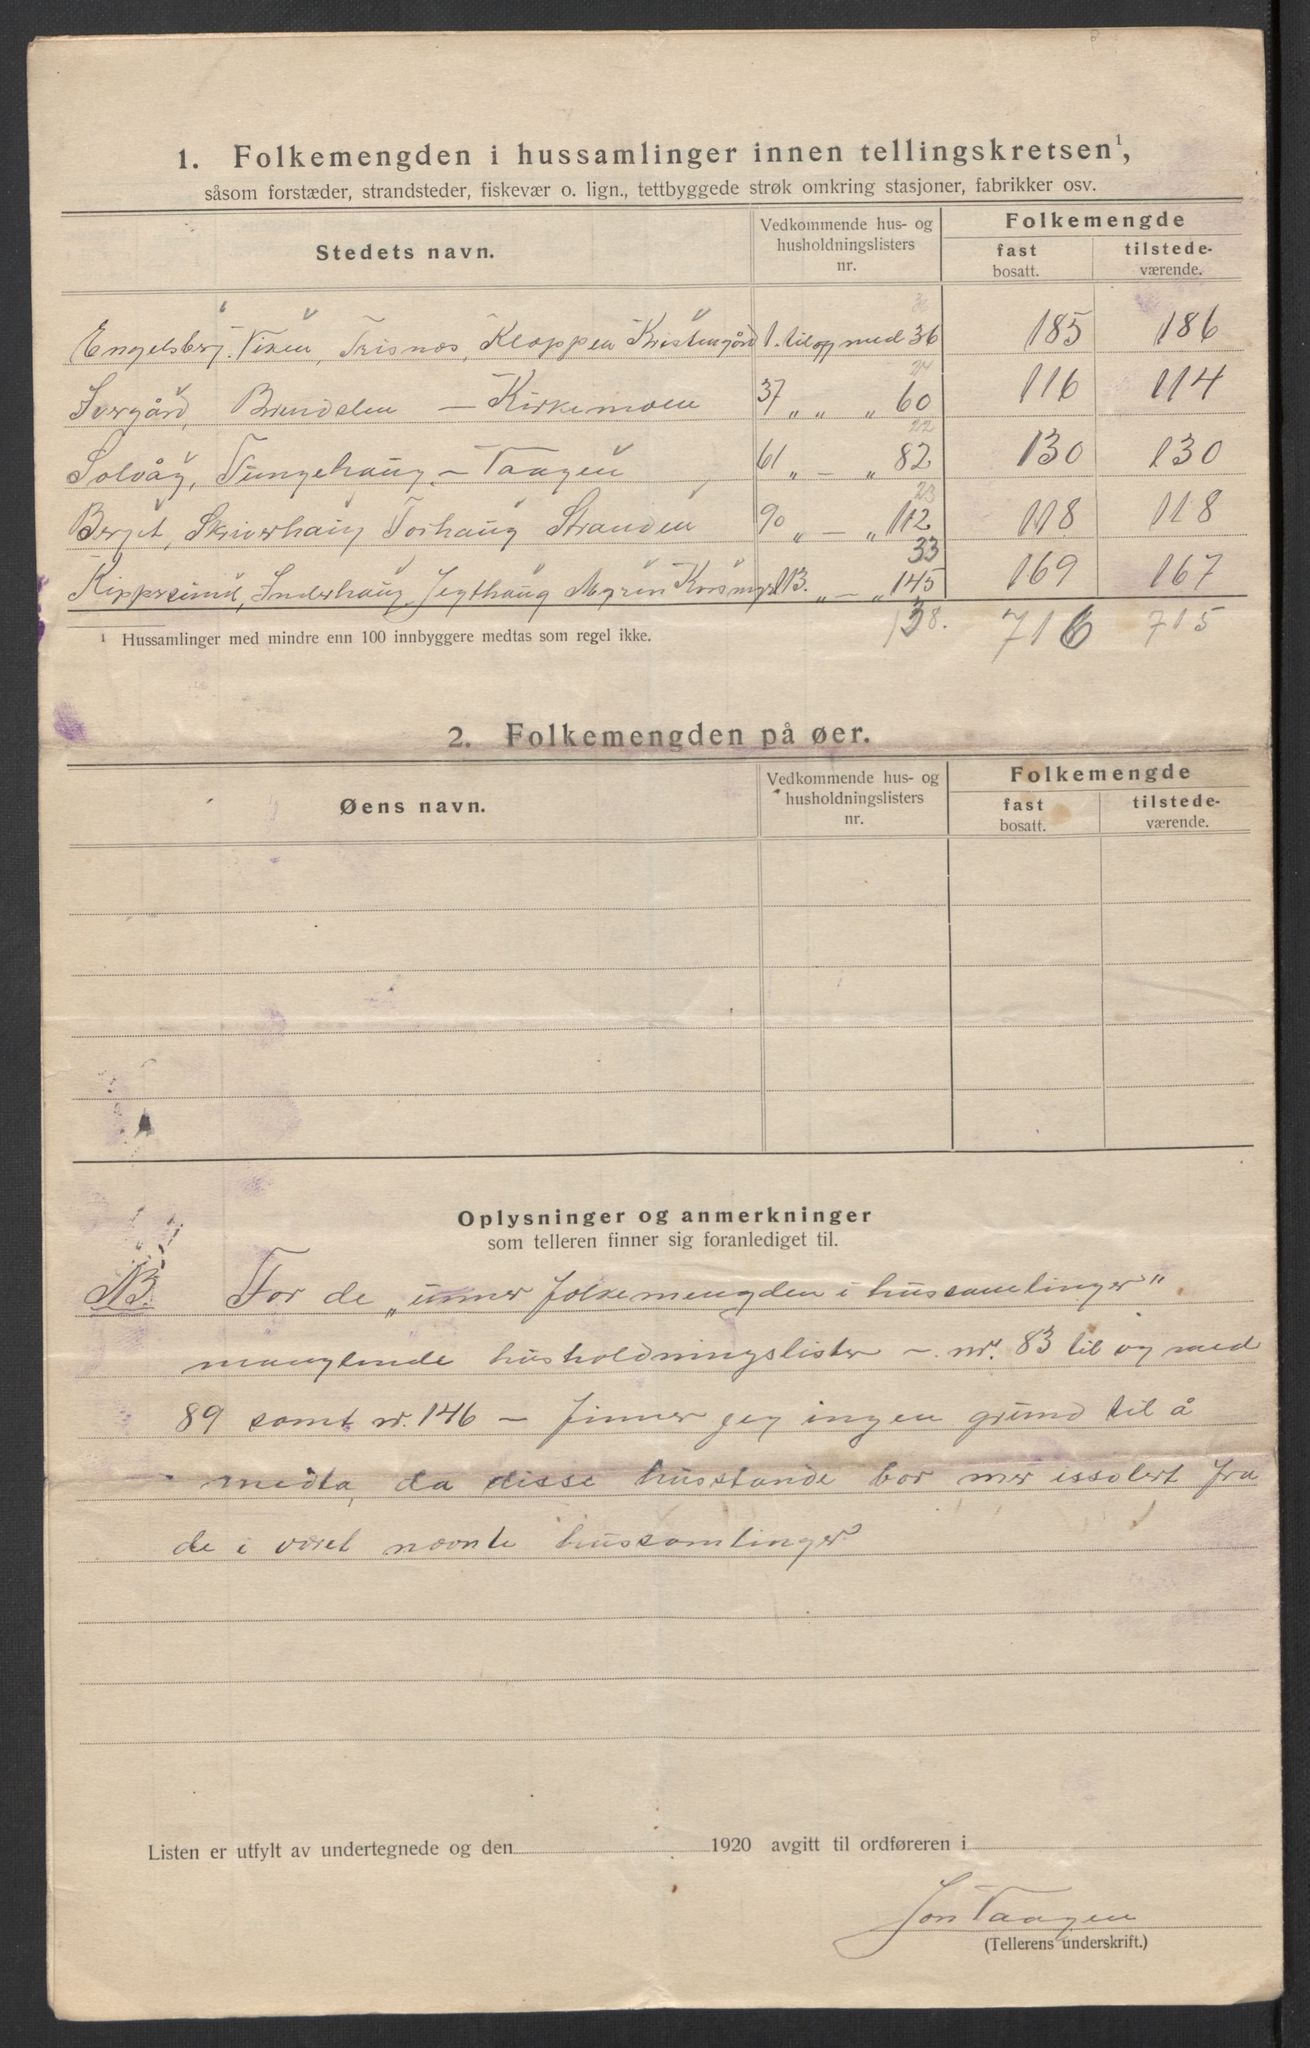 1. Folkemengden i hussamlinger innen tellingskretsen¹,
såsom forstæder, strandsteder, fiskevær o. lign., tettbyggede strøk omkring stasjoner, fabrikker osv.
Stedets navn. Vedkommende hus- og husholdningslisters nr. Folkemengde
fast bosatt. tilstede-værende.
Engelsberg, Viken, Trisnes, Kloppen Kristengård 1. til og med 36 36 185 186
Ivergård, Brendslen – Kirkemoen 37 „ „ „ 60 24 116 114
Solvåg, Tungehaug – Vaagen 61 „ – „ 82 22 130 130
Berget, Skriverhaug Torhaug Stranden 90 „ – „ 112 23 118 118
Inderhaug, Jegthaug Myren „ – „ 145 33 169 167
¹ Hussamlinger med mindre enn 100 innbyggere medtas som regel ikke. 138. 716 715
2. Folkemengden på øer.
Øens navn. Vedkommende hus- og husholdningslisters nr. Folkemengde
fast bosatt. tilstede-værende.
Oplysninger og anmerkninger
som telleren finner sig foranlediget til.
NB. For de „unner folkemengden i hussamlinger"
manglende husholdningslister – nr. 83 til og med
89 samt nr. 146 – finner jeg ingen grund til å
medta, da disse husstande bor mer issolert fra
de i været nævnte hussamlinger
Listen er utfylt av undertegnede og den 1920 avgitt til ordføreren i
Jon Vaagen
(Tellerens underskrift.)